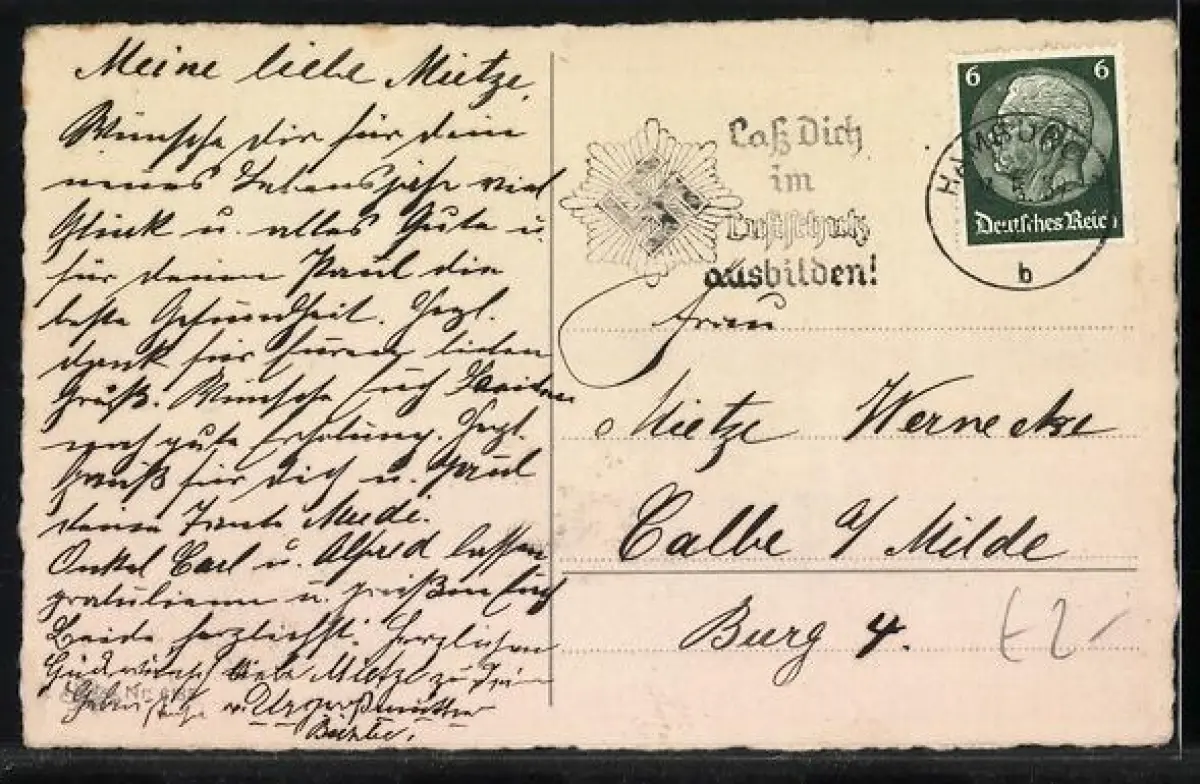 Meine liebe Mietze.
Wünsche dir für dein
neues Lebensjahr viel
Glück u. alles Gute u.
für deinen Paul die
beste Gesundheit. Herzl.
dank für Euren lieben
Gruß. Wünsche Euch Beiden
noch gute Erholung. Herzl.
Gruß für dich u. Paul
deine Tante
Onkel Carl u. Alfred lassen
gratulieren u. grüßen Euch
Beide herzlichst. Herzlichen
Glückwunsch liebe Mietze zu Dein
v. Urgroßmutter
Nr.
Laß Dich
im
Luftschutz
ausbilden!
HAMBURG
b
6 6
Deutsches Reich
Frau
Mietze Wernecke
Calbe a/ Milde
Burg 4.